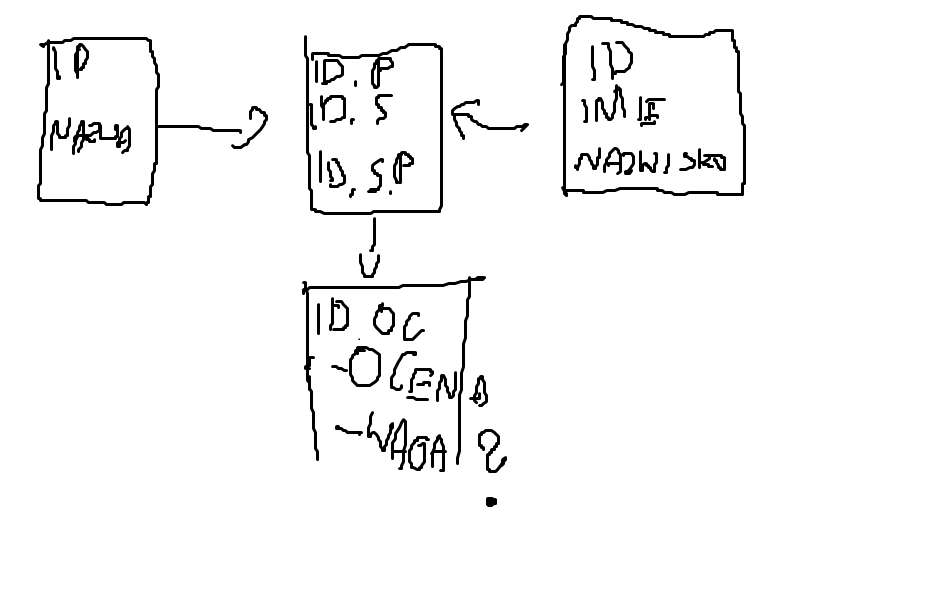 ID
NAZWA
ID. P
ID. S
ID, S.P
ID
IMIE
NAZWISKO
ID OC
-OCENA
-WAGA ?